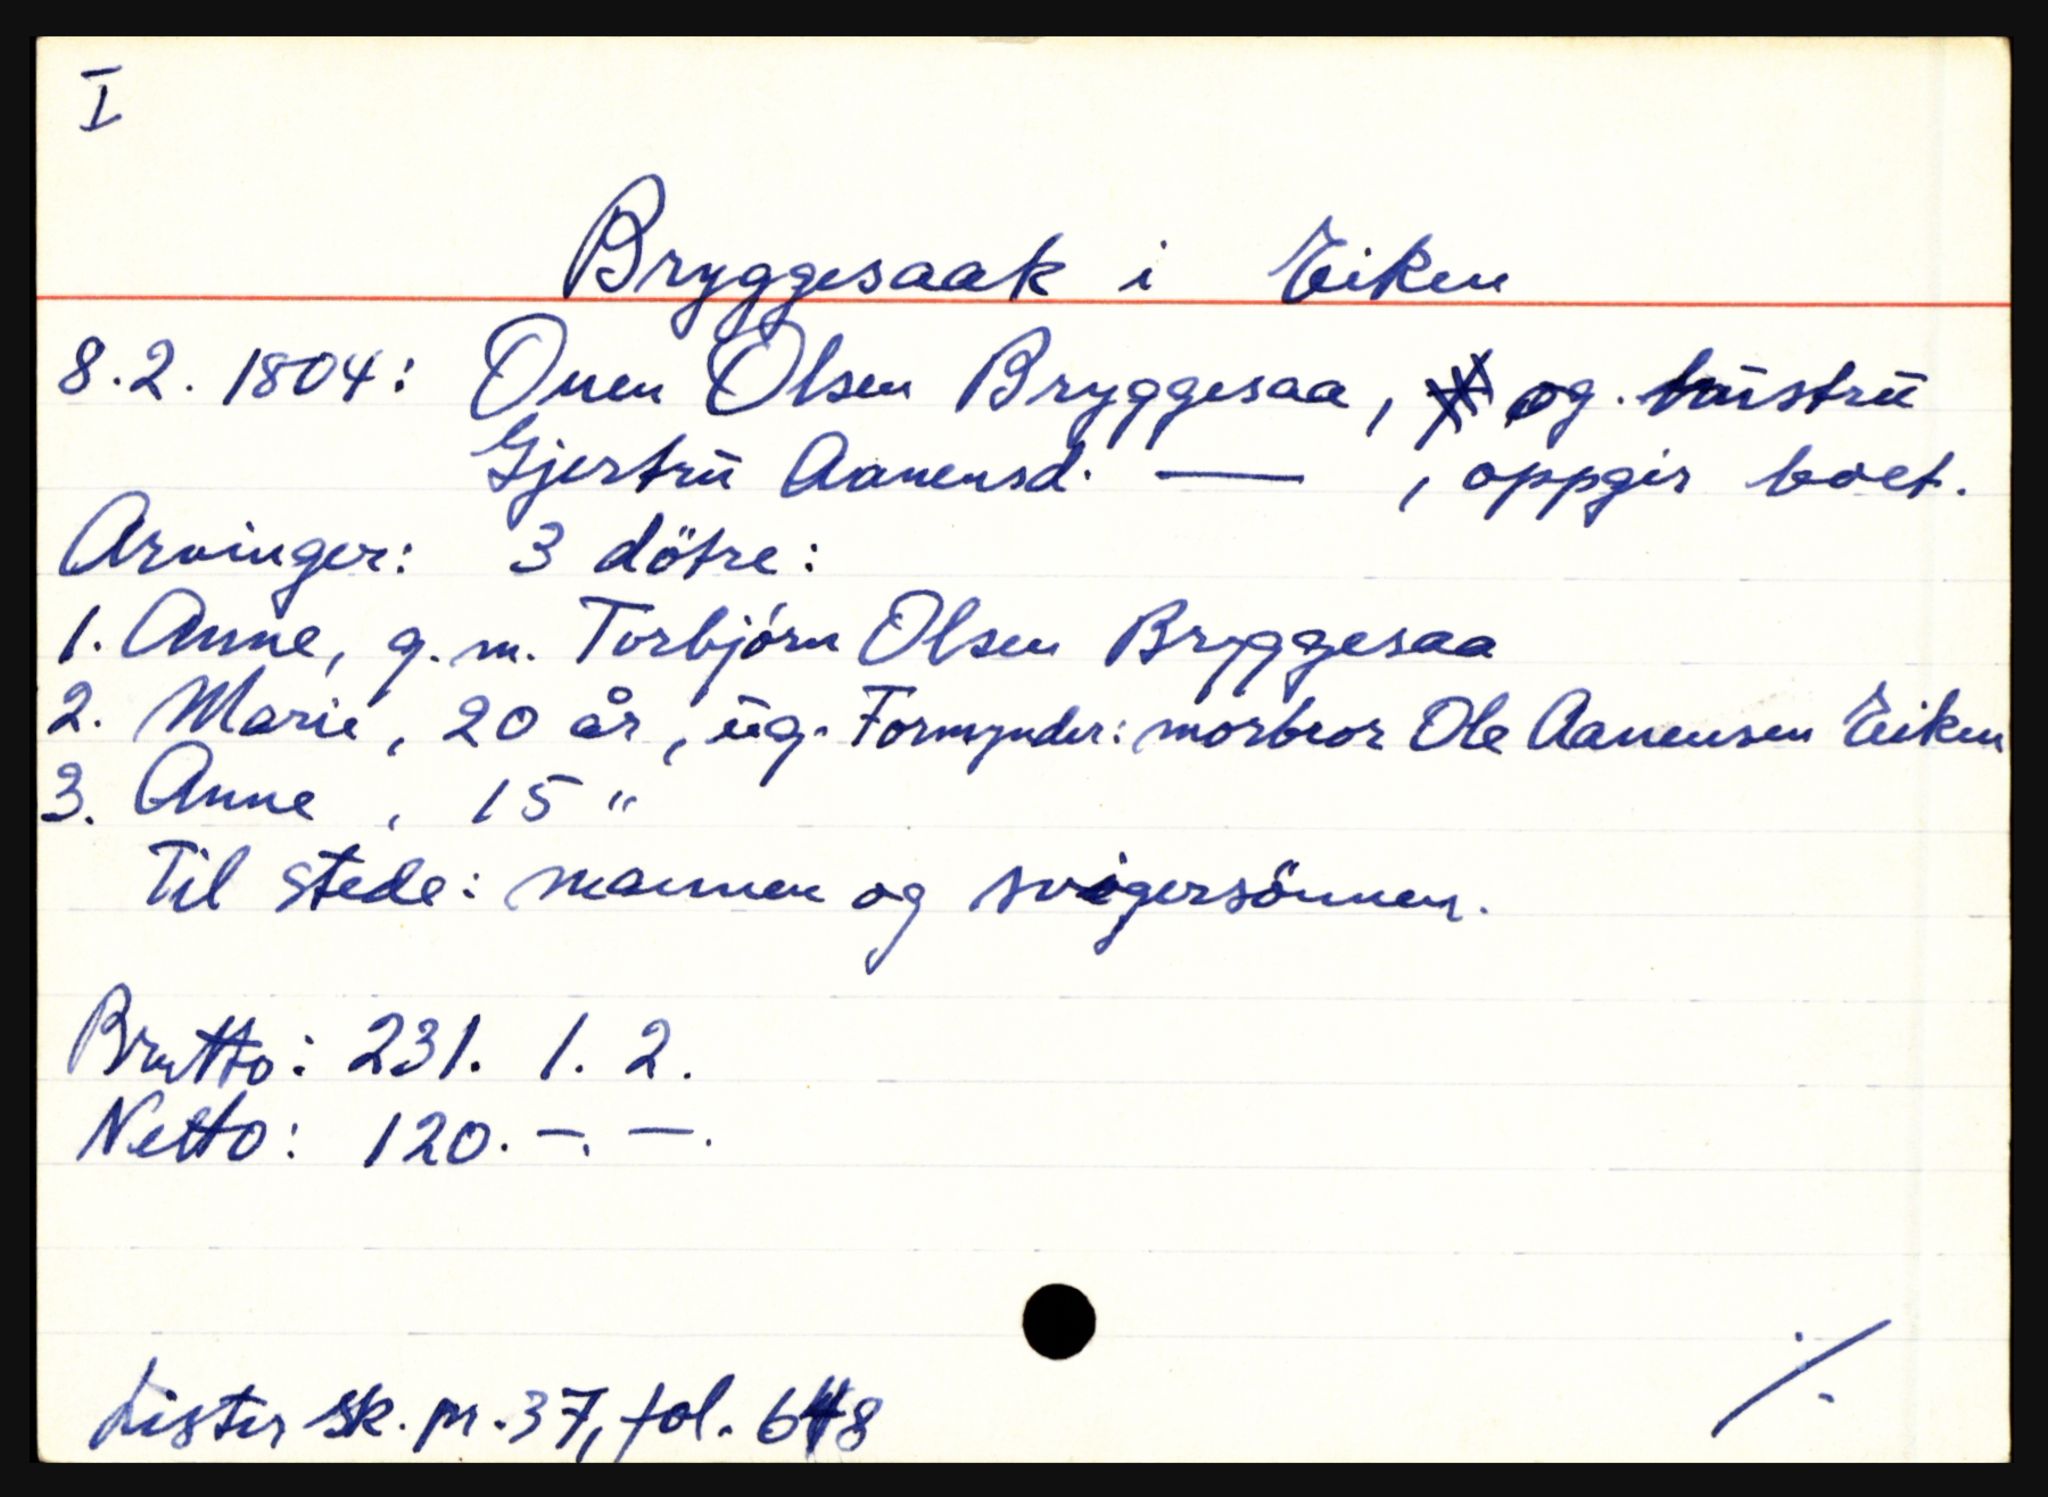 I
Bryggesaak i Eiken
8.2. 1804: Onen Olsen Bryggesaa, og hustru
Gjertru Aanensd. — , oppgir boet.
Arvinger: 3 dötre:
1. Anne, g. m. Torbjörn Olsen Bryggesaa
2. Marie, 20 år, ug. Formynder: morbror Ole Aanensen Eiken
3. Anne , 15 "
Til stede: mannen og svigersönnen.
Brutto: 231. 1. 2.
Netto: 120. –. –.
Lister sk. pr. 37, fol. 648
./.